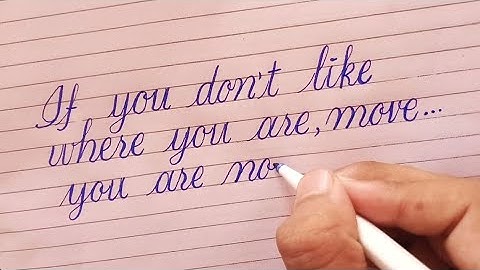 If you don't like
where you are, move...
you are no